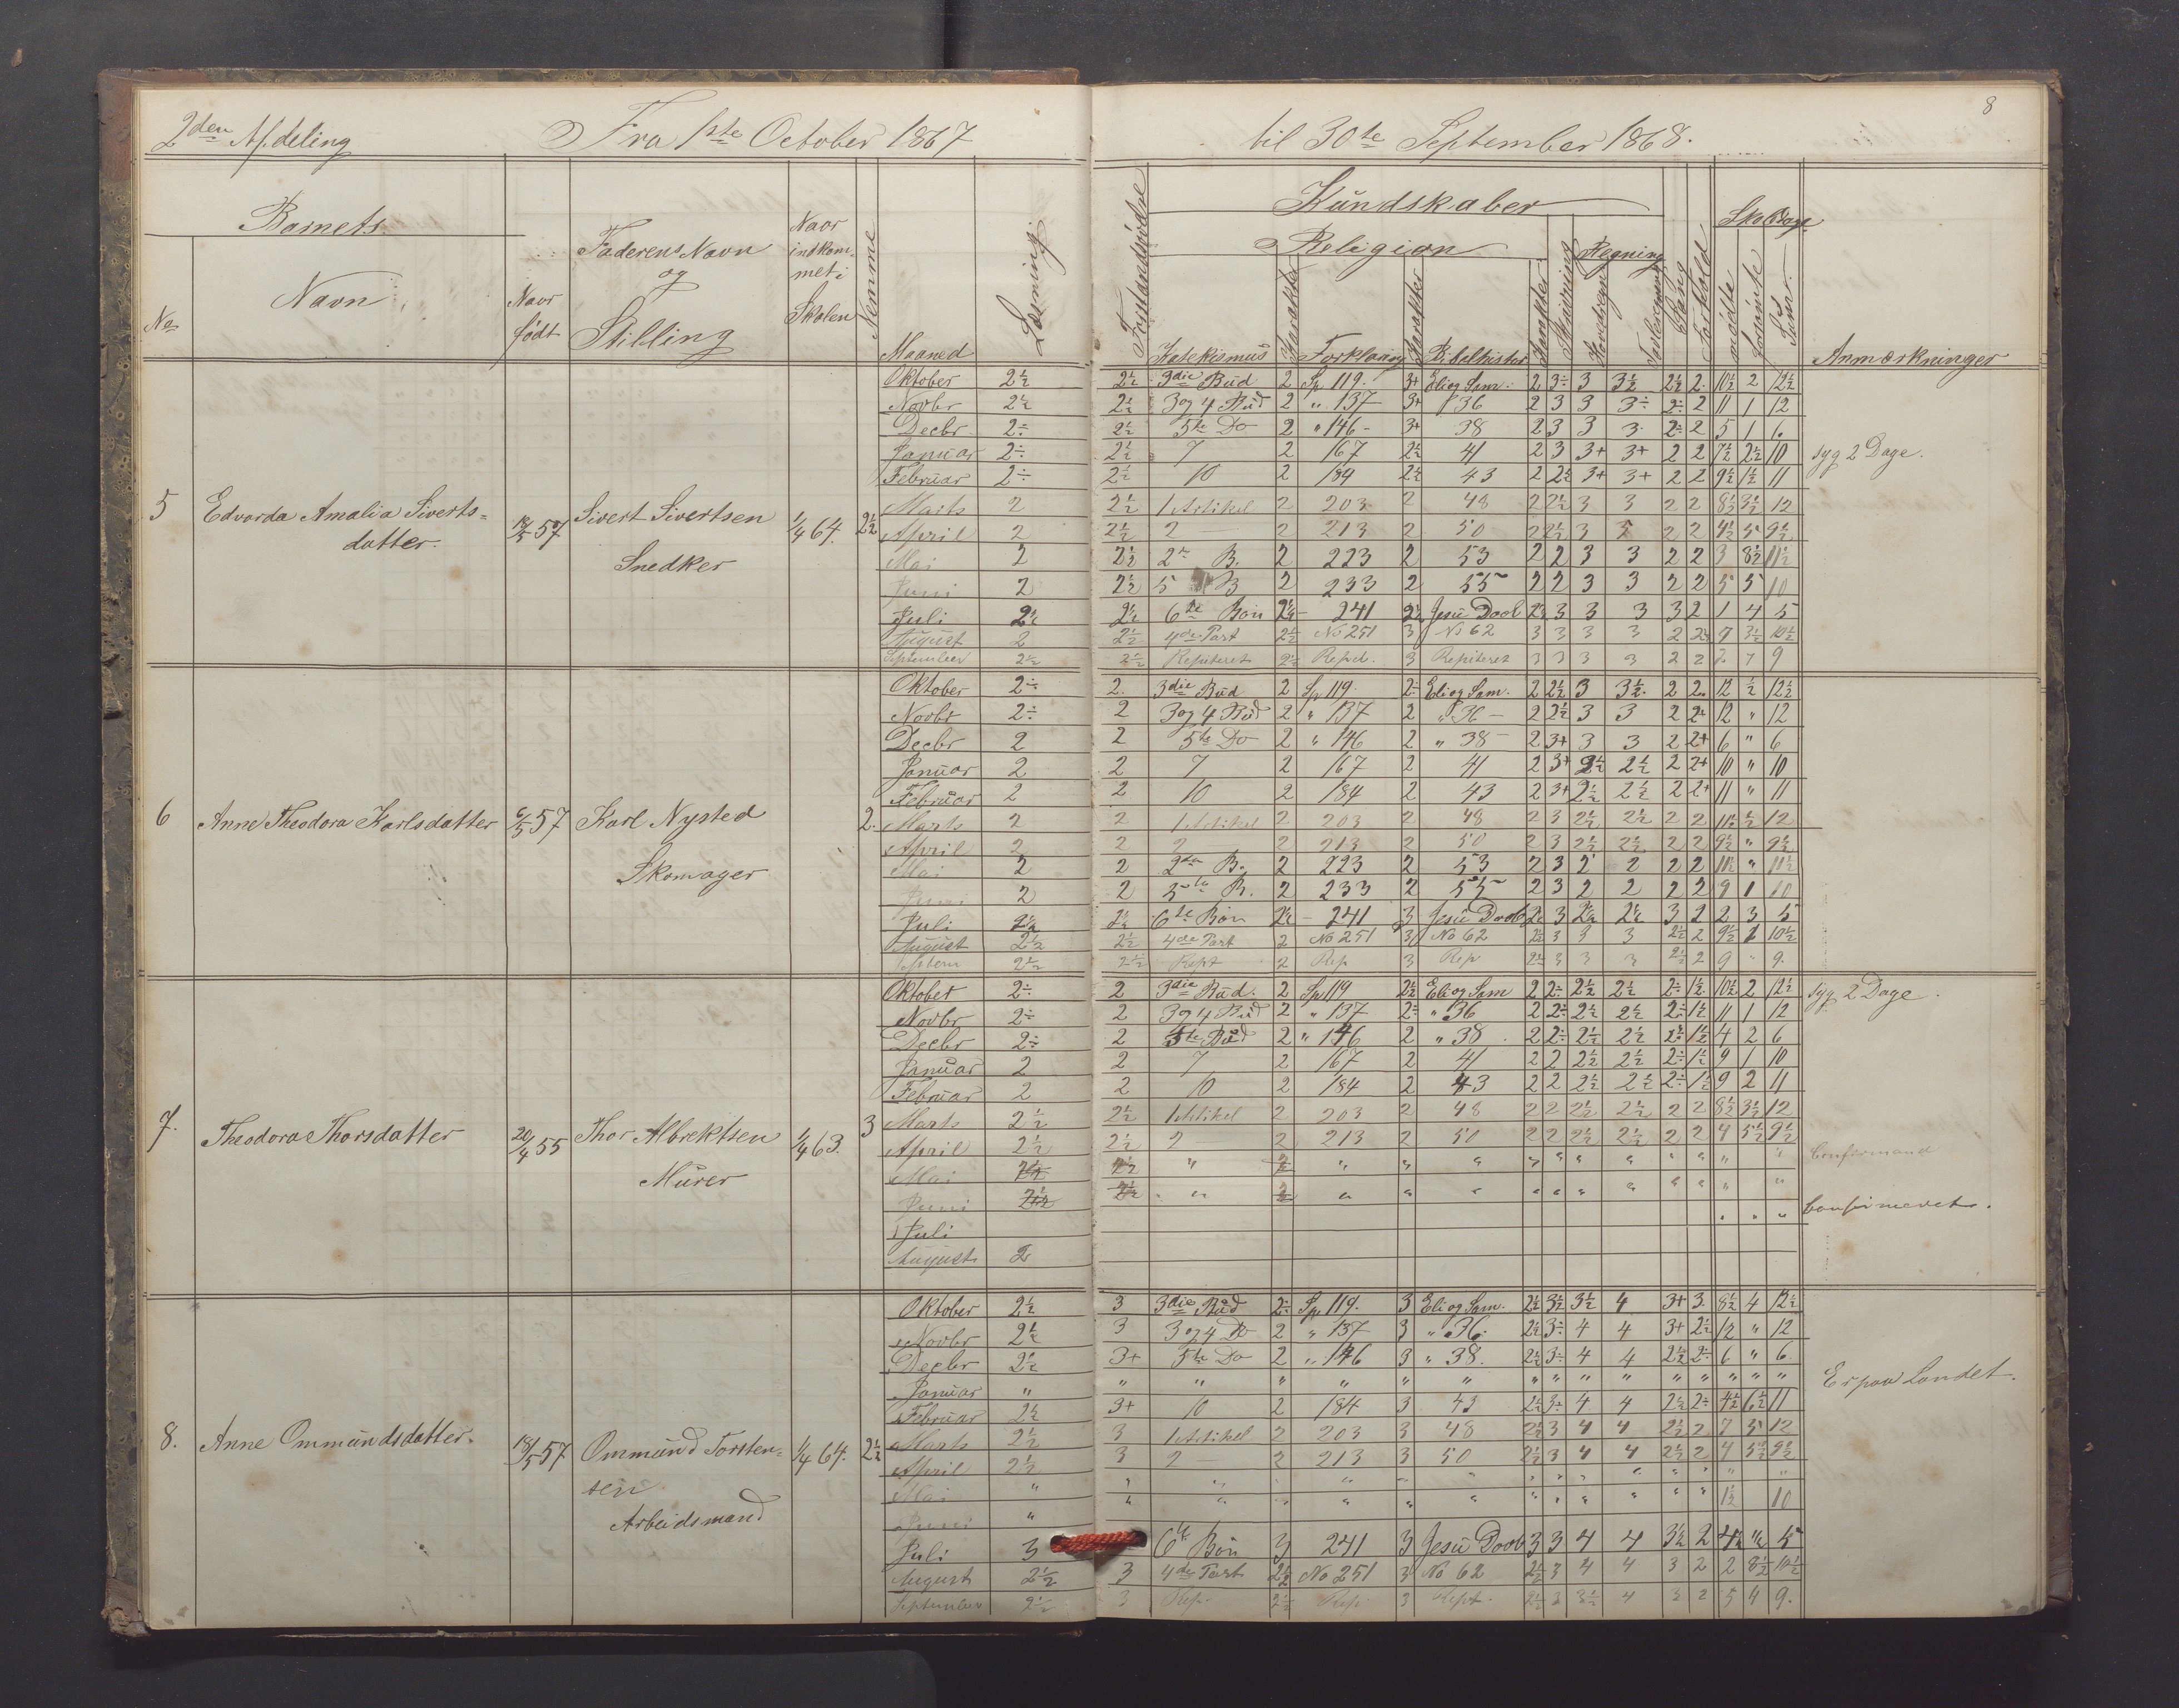 8
2den Afdeling Fra 1ste October 1867 til 30te September 1868.
Barnets
No Navn Naar født
Faderens Navn og Stilling
Naar indkommet i Skolen
Nemme
Maaned
Læsning
Forstandsøvelse
Kundskaber
Religion
Katekismus Karakter Forklaring Karakter Bibelhistor Karakter
Skrivning
Regning
Sang
Forhold
Skoledage
mødte forsømte Sum
Anmærkninger
5 Edvarda Amalia Siverts=
datter.
18/5 57 Sivert Sivertsen
Snedker
1/4 64. 2½
Oktober 2½ 2½ 3die Bud 2 Sp. 119. 3+ Eli og Sam. 2 3÷ 3 3½ 2½ 2. 10½ 2 12½
Novbr 2½ 2½ 3 og 4 Bud 2 " 137 3+ " 36 2 3 3 3÷ 2÷ 2 11 1 12
Decbr 2÷ 2½ 5te Do 2 " 146 - 3+ 38 2 3 3 3. 2÷ 2 5 1 6.
Januar 2÷ 2½ 7 2 167 2½ 41 2 3 3+ 3+ 2 2 7½ 2½ 10 syg 2 Dage.
Februar 2÷ 2½ 10 2 184 2½ 43 2 2½ 3+ 3+ 2 2 9½ 1½ 11
Marts 2 2½ 1 Artikel 2 203 2 48 2 2½ 3 3 2 2 8½ 3½ 12
April 2 2½ 2 2 213 2 50 2 2½ 3 3 2 2 4½ 5 9½
Mai 2 2½ 2n B. 2 223 2 53 2 2 3 3 2 2 3 8½ 11½
Juni 2 2½ 5 B 2 233 2 55 2 2 3 3 2 2 5 5 10
Juli 2½ 2½ 6te Bøn 2½ - 241 2½ Jesu Daab 2½ 3 3 3 3 2 1 4 5
August 2 2½ 4de Part 2½ No 251 3 No 62 3 3 3 3 2 2½ 7 3½ 10½
September 2½ 2½ Repiteret 2½ Reped. 3 Repiteret 3 3 3 3 2 2 2 7 9
6 Anne Theodora Karlsdatter 6/5 57 Karl Nysted
Skomager
2.
Oktober 2÷ 2. 3die Bud 2 Sp 119. 2÷ Eli og Sam. 2 2½ 3 3½. 2 2. 12 ½ 12½
Novbr 2÷ 2 3 og 4 Bud 2 " 137 2 " 36 - 2 2½ 3 3 2 2+ 12 " 12
Decbr 2 2 5te Do 2 " 146 2 " 38 - 2 3+ 3 3 2 2+ 6 " 6
Januar 2 2 7 2 167 2 41 2 3+ 2½ 2½ 2 2+ 10 " 10
Februar 2 2 10 2 184 2 43 2 3+ 2½ 2½ 2 2+ 11 " 11
Marts 2 2 1 Artikel 2 203 2 48 2 3 2½ 2½ 2 2 11½ ½ 12
April 2 2 2 2 213 2 50 2 3 2½ 2½ 2 2 9½ " 9½
Mai 2 2 2den B. 2 223 2 53 2 3 2 2 2 2 11½ " 11½
Juni 2 2 5te B. 2 233 2 55 2 3 2 2 2 2 9 1 10
Juli 2½ 2½ 6te Bøn 2½ - 241 3 Jesu Daab 2½ 3 2½ 2½ 3 2 2 3 5
August 2½ 2½ 4de Part 2 No 251 3 No 62 2½ 3 3 3 2½ 2 9½ 1 10½
Septem 2½ 2½ Rept 2 Rep 3 Rep 2½ 3 3 3 2½ 2 9 " 9.
7. Theodora Thorsdatter 20/4 55 Thor Albrektsen
Murer
1/4 63. 3
Oktober 2÷ 2 3die Bud. 2 Sp 119 2½ Eli og Sam 2 2÷ 2½ 2½ 2÷ 1½ 10½ 2 12½ syg 2 Dage.
Novbr 2÷ 2 3 og 4 Bud 2 " 137 2÷ " 36 2 2÷ 2½ 2½ 2÷ 1½ 11 1 12
Decbr 2÷ 2 5te Bud 2 " 146 2 " 38. 2 2÷ 2½ 2½ 2÷ 1½ 4 2 6
Januar 2 2 7 2 167 2 41 2 2 2½ 2½ 2÷ 1½ 9 1 10
Februar 2 2 10 2 184 2 43 2 2 2½ 2½ 2÷ 1½ 9 2 11
Marts 2½ 2½ 1 Artikel 2 203 2 48 2 2 2½ 2½ 2 2 8½ 3½ 12
April 2½ 2½ 2 - 2 213 2 50 2 2 2½ 2½ 2 2 4 5½ 9½
Mai 2½ 2½ " 2 " " " " " " " " " " " Confirmand
Juni 2½ 2½ " 2 " " " " " " " " " " "
Juli " " " Confirmeret.
August 2
8. Anne Ommundsdatter. 18/5 57 Ommund Torsten=
sen
Arbeidsmand
1/4 64. 2½
Oktober 2½ 3 3die Bud 2÷ Sp. 119. 3 Eli og Sam. 2½ 3½ 3½ 4 3+ 3. 8½ 4 12½
Novbr 2½ 3 3 og 4 Do 2 " 137 3 " 36. 2½ 3÷ 4 4 3+ 2½ 12 " 12
Decbr 2½ 3+ 5te Do 2 " 146 3 " 38. 2½ 3÷ 4 4 2½ 2÷ 6 " 6
Januar " " " " " " " " " " " " " " " " Er paa Landet.
Februar 2½ 3+ 10 2 184 3 43 2½ 3÷ 4 4 2½ 2÷ 4½ 6½ 11
Marts 2½ 3 1 Artikel 2 203 3 48 2½ 3 4 4 2½ 2 7 5 12
April 2½ 3 2 - 2 213 3 50 2½ 3 4 4 2½ 2 4 5½ 9½
Mai " " " " " " " " " " " " " "
Juni " " " " " " " " " " " " " 1½ 10
Juli 3 6te Bøn 3 241 3 Jesu Daab 3 3 4 4 3½ 2 4½ ½ 5
August 2½ 3 4de Part 2½ No 251 3 No 62 2½ 3 4 4 3 2 2 8½ 10½
September 2½ 3 Rep. 2½ Rep 3 Rept. 2½ 3 3½ 4 3 2 5 4 9.